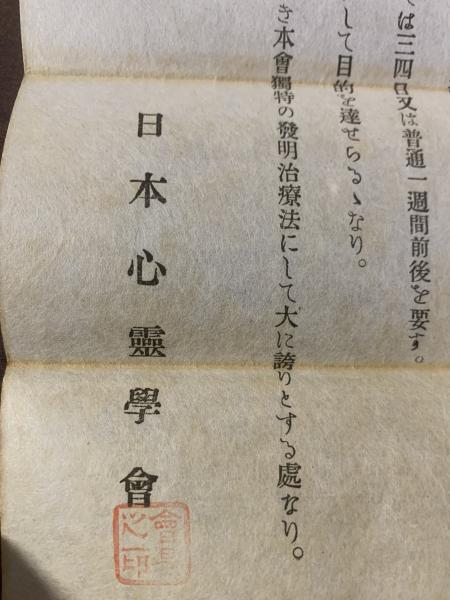 は三四日又は普通一週間前後を要す。
して目的を達せらるゝなり。
き本會獨特の發明治療法にして大に誇りとする處なり。
日本心靈學會
會長之印